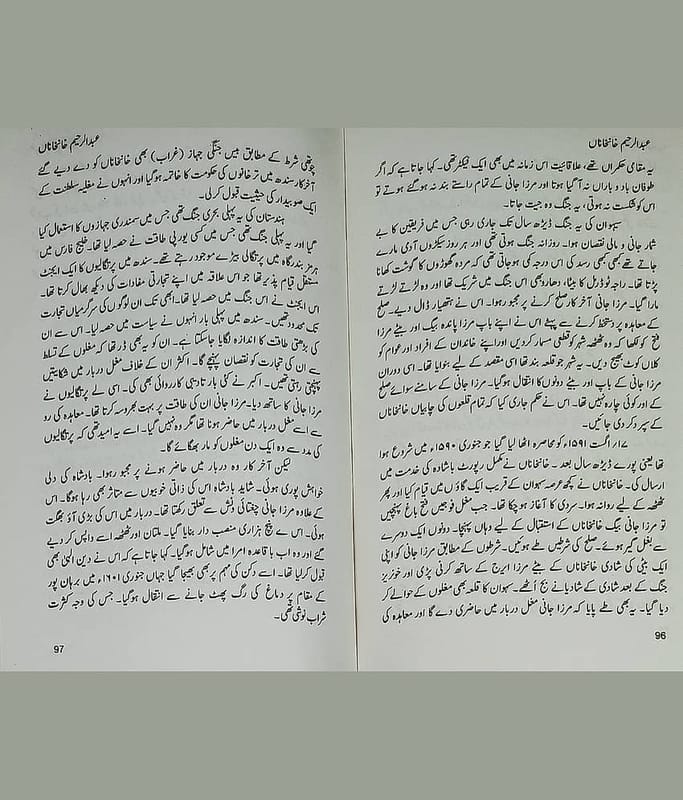 عبدالرحیم خانخاناں
یہ مقامی حکمراں تھے، علاقائیت اس زمانہ میں بھی ایک فیکٹر تھی۔ کہا جاتا ہے کہ اگر
طوفان باد و باراں نہ آگیا ہوتا اور مرزا جانی کے تمام راستے بند نہ ہوگئے ہوتے تو
اس کو شکست نہ ہوتی، یہ جنگ وہ جیت جاتا۔
سیہوان کی یہ جنگ ڈیڑھ سال تک جاری رہی جس میں فریقین کا بے
شمار جانی و مالی نقصان ہوا۔ روزانہ جنگ ہوتی تھی اور ہر روز سیکڑوں آدمی مارے
جاتے تھے کبھی کبھی رسد کی اس درجہ کمی ہوجاتی تھی کہ مردہ گھوڑوں کا گوشت کھانا
پڑتا تھا۔ راجہ ٹوڈرمل کا بیٹا، دھارو بھی اس جنگ میں شریک تھا اور وہ لڑتے لڑتے
مارا گیا۔ مرزا جانی آخر کار صلح کرنے پر مجبور ہوا۔ اس نے ہتھیار ڈال دیے۔ صلح
کے معاہدہ پر دستخط کرنے سے پہلے اس نے اپنے باپ مرزا پائندہ بیگ اور بیٹے مرزا
فتح کو لکھا کہ وہ ٹھٹھہ شہر کو قطعی مسمار کردیں اور اپنے خاندان کے افراد اور عوام کو
کلاں کوٹ بھیج دیں۔ یہ شہر جو قلعہ بند تھا اسی مقصد کے لیے بنوایا تھا۔ اسی دوران
مرزا جانی کے باپ اور بیٹے دونوں کا انتقال ہوگیا۔ مرزا جانی کے سامنے سوائے صلح
کے اور کوئی چارہ نہیں تھا۔ اس نے حکم جاری کیا کہ تمام قلعوں کی چابیاں خانخاناں
کے سپرد کر دی جائیں۔
۱۷؍ اگست ۱۵۹۱ء کو محاصرہ اٹھا لیا گیا جو جنوری ۱۵۹۰ء میں شروع ہوا
تھا یعنی پورے ڈیڑھ سال بعد۔ خانخاناں نے مکمل رپورٹ بادشاہ کی خدمت میں
ارسال کی۔ خانخاناں نے کچھ عرصہ سہوان کے قریب ایک گاؤں میں قیام کیا اور پھر
ٹھٹھہ کے لیے روانہ ہوا۔ سردی کا آغاز ہوچکا تھا۔ جب مغل فوجیں فتح باغ پہنچیں
تو مرزا جانی بیگ خانخاناں کے استقبال کے لیے وہاں پہنچا۔ دونوں ایک دوسرے
سے بغل گیر ہوئے۔ صلح کی شرطیں طے ہوئیں۔ شرطوں کے مطابق مرزا جانی کو اپنی
ایک بیٹی کی شادی خانخاناں کے بیٹے مرزا ایرج کے ساتھ کرنی پڑی اور خونریز
جنگ کے بعد شادی کے شادیانے بج اُٹھے۔ سہوان کا قلعہ بھی مغلوں کے حوالے کر
دیا گیا۔ یہ بھی طے پایا کہ مرزا جانی مغل دربار میں حاضری دے گا اور معاہدہ کی
96
عبدالرحیم خانخاناں
چوتھی شرط کے مطابق بیس جنگی جہاز (غراب) بھی خانخاناں کو دے دیے گئے
آخر کار سندھ میں ترخانوں کی حکومت کا خاتمہ ہوگیا اور انہوں نے مغلیہ سلطنت کے
ایک صوبیدار کی حیثیت قبول کرلی۔
ہندستان کی یہ پہلی بحری جنگ تھی جس میں سمندری جہازوں کا استعمال کیا
گیا اور یہ پہلی جنگ تھی جس میں کسی یورپی طاقت نے حصہ لیا تھا۔ خلیج فارس میں
ہرمز بندرگاہ میں پرتگالی بیڑے موجود رہتے تھے۔ سندھ میں پرتگالیوں کا ایک ایجنٹ
مستقل قیام پذیر تھا جو اس علاقہ میں اپنے تجارتی مفادات کی دیکھ بھال کرتا تھا۔
اس ایجنٹ نے اس جنگ میں حصہ لیا تھا۔ ابھی تک ان لوگوں کی سرگرمیاں تجارت
تک محدود تھیں۔ سندھ میں پہلی بار انہوں نے سیاست میں حصہ لیا۔ اس سے ان
کی بڑھتی طاقت کا اندازہ لگایا جاسکتا ہے۔ ان کو یہ بھی ڈر تھا کہ مغلوں کے تسلط
سے ان کی تجارت کو نقصان پہنچے گا۔ اکثر ان کے خلاف مغل دربار میں شکایتیں
پہنچتی رہتی تھیں۔ اکبر نے کئی بار تادیبی کارروائی بھی کی۔ اسی لے پرتگالیوں نے
مرزا جانی کا ساتھ دیا۔ مرزا جانی ان کی طاقت پر بہت بھروسہ کرتا تھا۔ معاہدہ کی رو
سے اسے مغل دربار میں حاضر ہونا تھا مگر وہ نہیں گیا۔ اسے یہ امید تھی کہ پرتگالیوں
کی مدد سے وہ ایک دن مغلوں کو مار بھگائے گا۔
لیکن آخر کار وہ دربار میں حاضر ہونے پر مجبور ہوا۔ بادشاہ کی دلی
خواہش پوری ہوئی۔ شاید بادشاہ اس کی ذاتی خوبیوں سے متاثر بھی رہا ہوگا۔ اس
کے علاوہ مرزا جانی چغتائی ونش سے تعلق رکھتا تھا۔ دربار میں اس کی بڑی آؤ بھگت
ہوئی۔ اس ے پنج ہزاری منصب دار بنایا گیا۔ ملتان اور ٹھٹھہ اسے واپس کر دیے
گئے اور وہ اب باقاعدہ امرا میں شامل ہوگیا۔ کہا جاتا ہے کہ اس نے دین الٰہی بھی
قبول کرلیا تھا۔ اسے دکن کی مہم پر بھی بھیجا گیا جہاں جنوری ۱۶۰۱ء میں برہان پور
کے مقام پر دماغ کی رگ پھٹ جانے سے انتقال ہوگیا۔ جس کی وجہ کثرت
شراب نوشی تھی۔
97